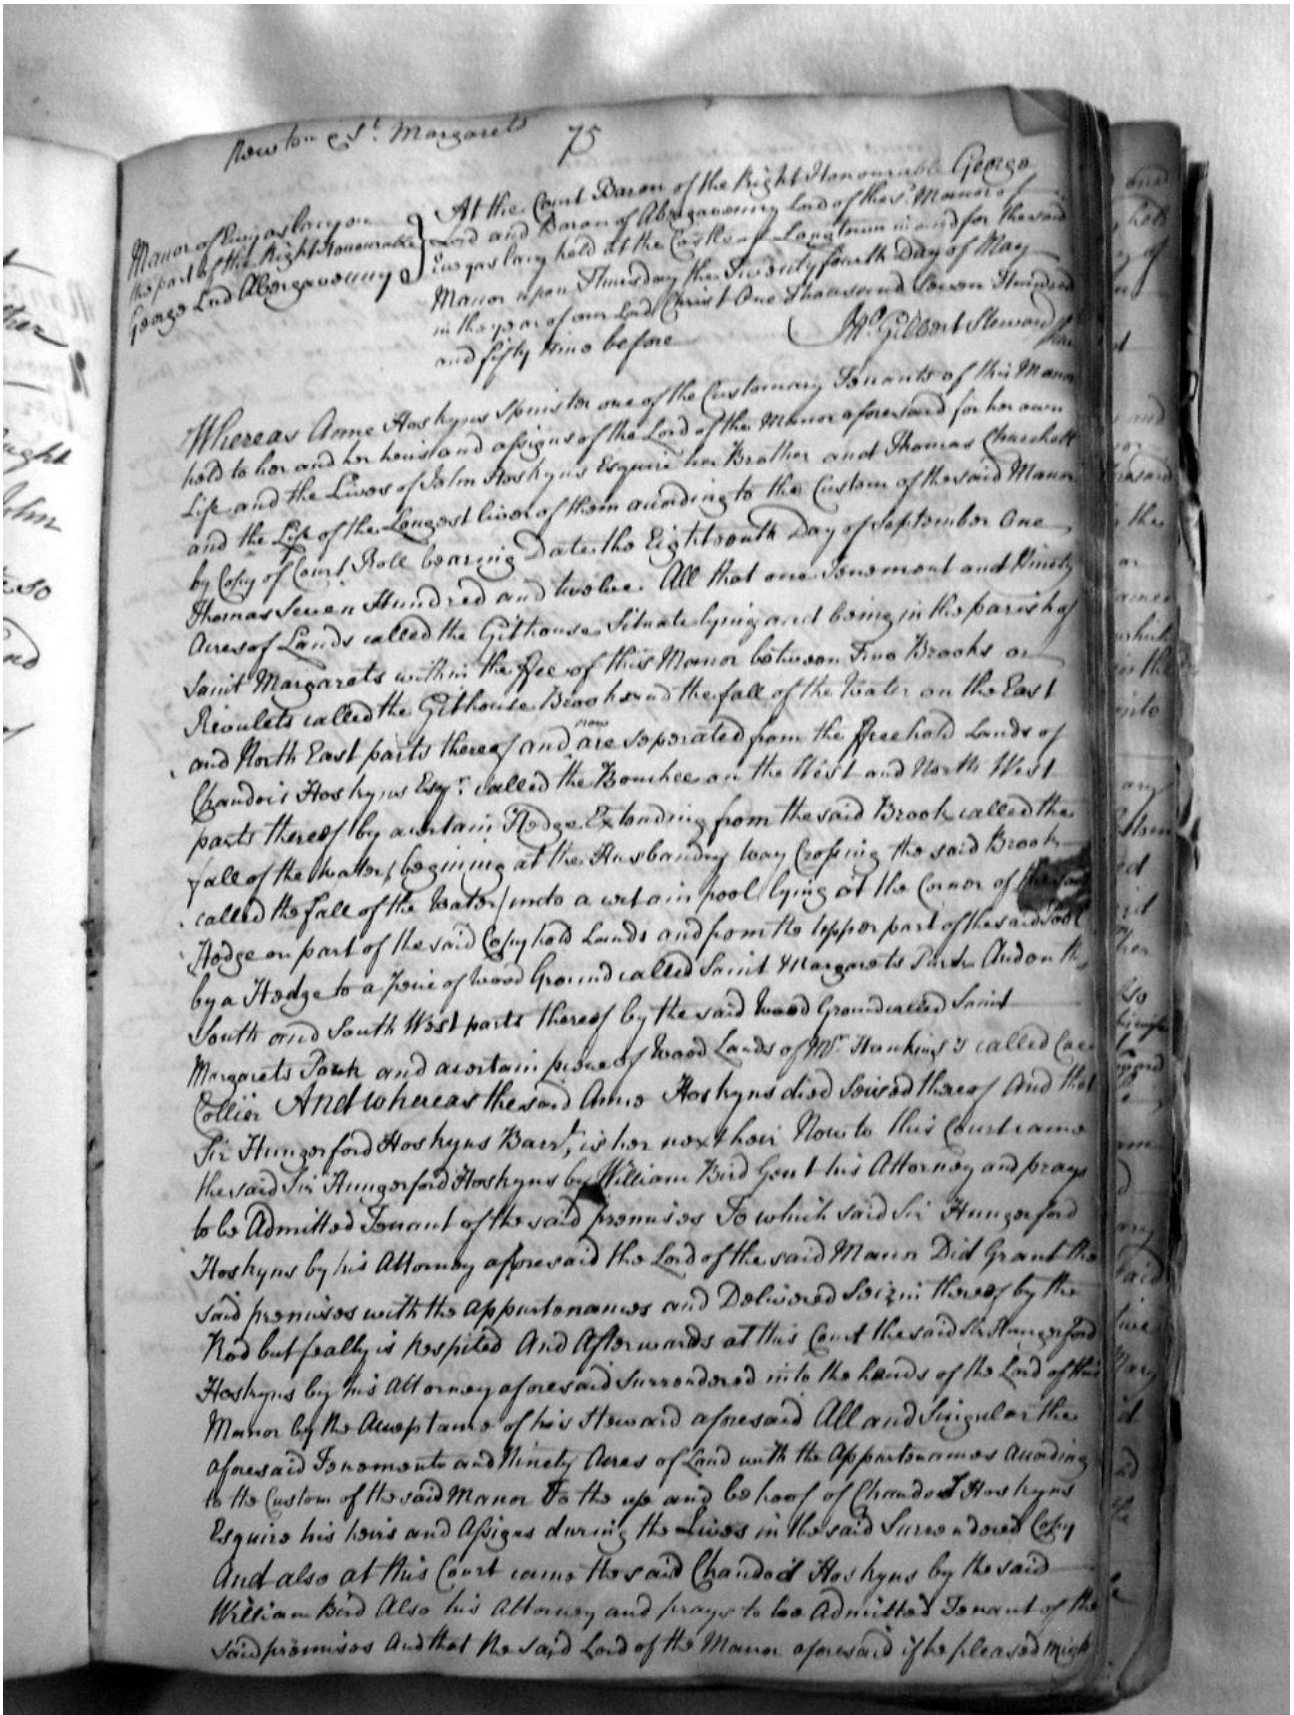 Newton & St. Margarets
75
Manor of Ewyas lacy on
the part of the Right Honourable
George Lord Abergavenny
At the Court Baron of the Right Honourable George
Lord and Baron of Abergavenny Lord of the sd. Manor of
Ewyas lacy held at the Castle of Longtown in and for the said
Manor upon Thursday the Twenty fourth Day of May
in the year of our Lord Christ One Thousand Seven Hundred
and fifty nine before
Jno. Gilbert Steward
Whereas Anne Hoskyns Spinster one of the Customary Tenants of this Manor
held to her and her heirs and assigns of the Lord of the Manor aforesaid for her own
Life and the Lives of John Hoskyns Esquire her Brother and Thomas Churchill
and the Life of the Longest liver of them according to the Custom of the said Manor
by Copy of Court Roll bearing Date the Eighteenth Day of September One
Thomas Seven Hundred and twelve All that one Tenement and Ninety
Acres of Lands called the Gilhouse Situate lying and being in the parish of
Saint Margarets within the ffee of this Manor between Two Brooks or
Rivulets called the Gilhouse Brook and the fall of the Water on the East
and North East parts thereof and now are seperated from the ffreehold Lands of
Chandois Hoskyns Esqr. called the Bourhee on the West and North West
parts thereof by a certain Hedge Extending from the said Brook called the
fall of the Water (begining at the Husbandry way Crossing the said Brook
called the fall of the Water) unto a certain pool lying at the Corner of the said
Hedge on part of the said Copyhold Lands and from the upper part of the said Pool
by a Hedge to a peice of Wood Ground called Saint Margarets Park And on the
South and South West parts thereof by the said Wood Ground called Saint
Margarets Park and a certain piece of Wood Lands of Mr. Hawkins's called Cae
Collier And whereas the said Anne Hoskyns died Seised thereof And that
Sir Hungerford Hoskyns Barrt. is her next heir Now to this Court came
the said Sir Hungerford Hoskyns by William Bird Gent his Attorney and prays
to be Admitted Tenant of the said premises To which said Sir Hungerford
Hoskyns by his Attorney aforesaid the Lord of the said Manor Did Grant the
said premises with the Appurtenances and Delivered Seizin thereof by the
Rod but fealty is Respited And Afterwards at this Court the said Sir Hungerford
Hoskyns by his Attorney aforesaid Surrendered into the hands of the Lord of this
Manor by the Acceptance of his Steward aforesaid All and Singular the
aforesaid Tenements and Ninety Acres of Land with the Appurtenances according
to the Custom of the said Manor To the use and behoof of Chandois Hoskyns
Esquire his heirs and Assigns during the Lives in the said Surrendered Copy
And also at this Court came the said Chandois Hoskyns by the said
William Bird Also his Attorney and prays to be Admitted Tenant of the
said premises And that the said Lord of the Manor aforesaid if he pleased might